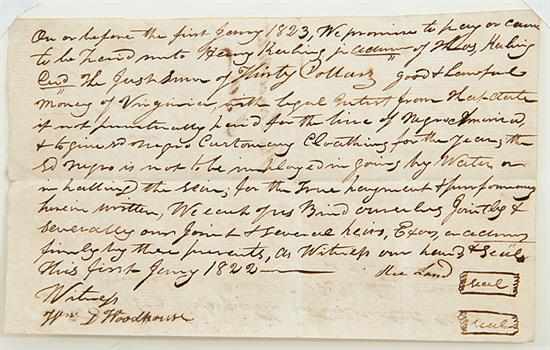 On or before the first Janry 1823, We promise to pay or cause
to be paid unto Henry Keeling jr admr of Thos Keeling
Decd The Just Sum of Thirty Dollars good & Lawful
Money of Virginia, with legal Interest from that date
if not punctually paid for the hire of Negro
& to give sd Negro Customary Cloathing for the Year, the
sd Negro is not to be employed in going by Water or
in halling the sein; for the True payment & performance
herein written, We each of us Bind ourselves Jointly &
Severally our Joint & Several heirs, Exors, or admrs
firmly by these presents, as Witness our hands & Seals
This first Janry 1822
Land seal
Witness
Wm D Woodhouse seal